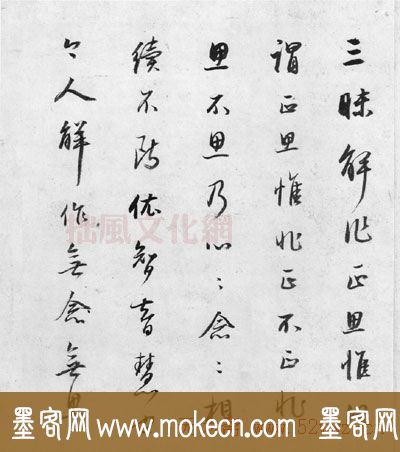 三昧解作正思惟
謂正思惟非正不正非
思不思乃心:念:相
續不断依智者慧
今人解作無念無思
拙風文化網
墨客网 www.mokecn.com 墨客网